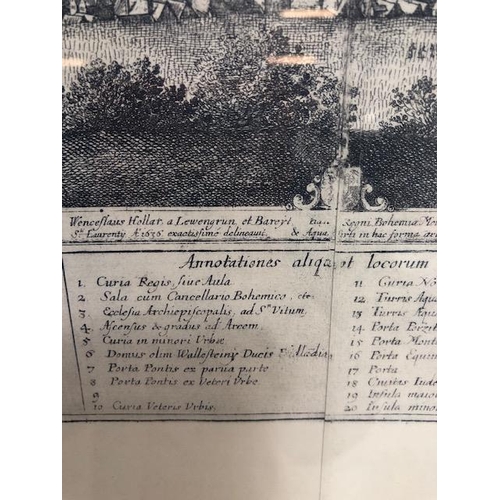 Wenceslaus Hollar, a Lewengrun, et Bareyt
Regni Bohemiæ
St. Laurenty A° 1636 exactissime delineavi,
& Aqua forti in hac forma
Annotationes aliquot locorum
1. Curia Regis, sive Aula
2. Sala cum Cancellario Bohemico, etc.
3. Ecclesia Archiepiscopalis, ad St. Vitum,
4. Ascensus & gradus ad Arcem.
5 Curia in minori Urbe
6 Domus olim Wallesteiny Ducis
7 Porta Pontis ex parva parte
8 Porta Pontis ex Veteri Urbe
9
10 Curia Veteris Urbis.
11 Curia No
12 Turris Aqu
13 Turris Aqu
14 Porta
15 Porta Mont
16 Porta Equin
17 Porta
18 Civitas Iude
19 Insula maior
20 Insula minor